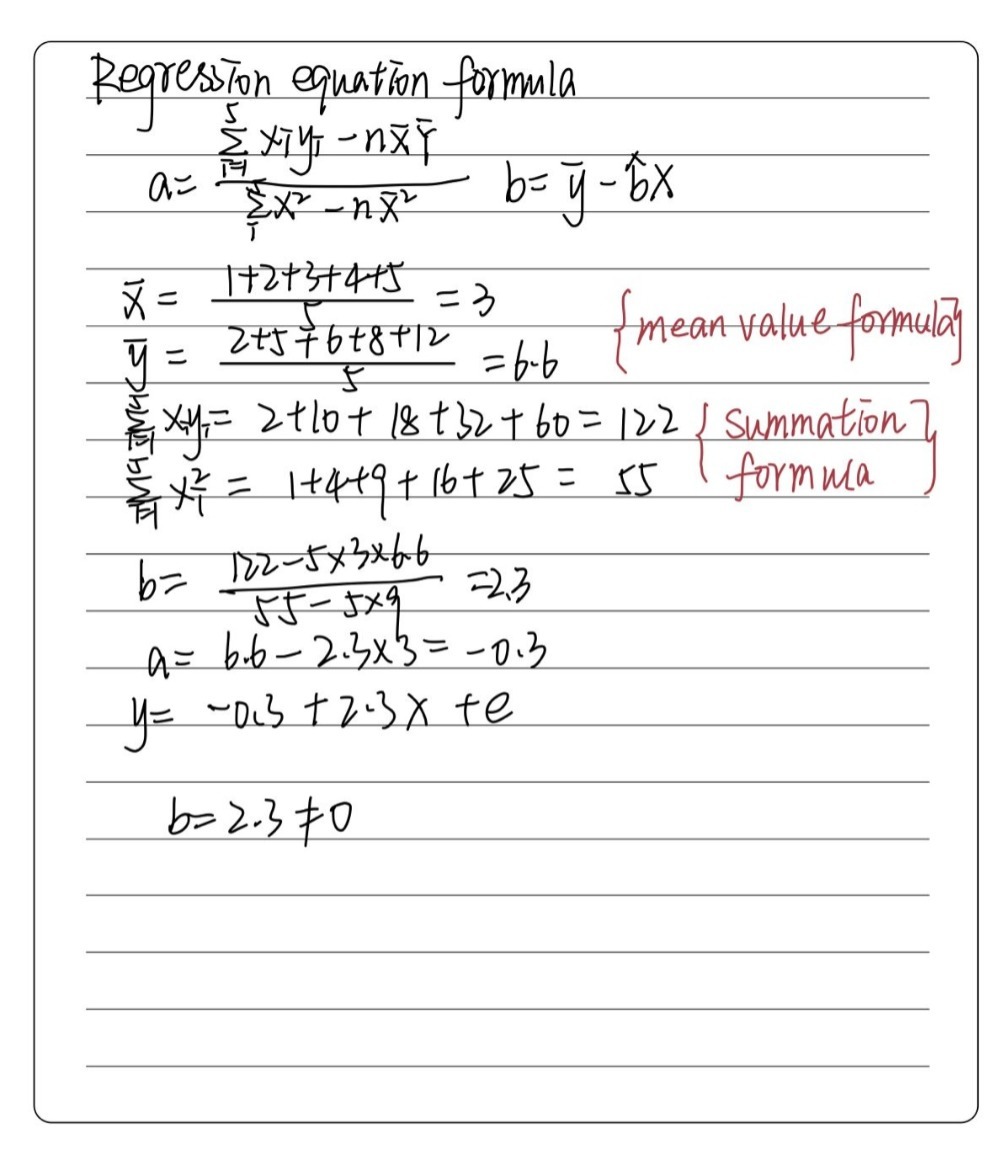 Regression equation formula
a = \frac{\sum_{i=1}^{5} x_i y_i - n\bar{x}\bar{Y}}{\sum_{i}^{5} x^2 - n\bar{x}^2} b = \bar{y} - \hat{b}x
\bar{x} = \frac{1+2+3+4+5}{5} = 3
\bar{y} = \frac{2+5+6+8+12}{5} = 6.6 {mean value formula}
\sum_{i=1}^{5} x_i y_i = 2+10+18+32+60 = 122 {summation
\sum_{i=1}^{5} x_i^2 = 1+4+9+16+25 = 55 formula}
b = \frac{122-5×3×6.6}{55-5×9} = 2.3
a = 6.6 - 2.3×3 = -0.3
y = -0.3 + 2.3x + e
b = 2.3 ≠ 0